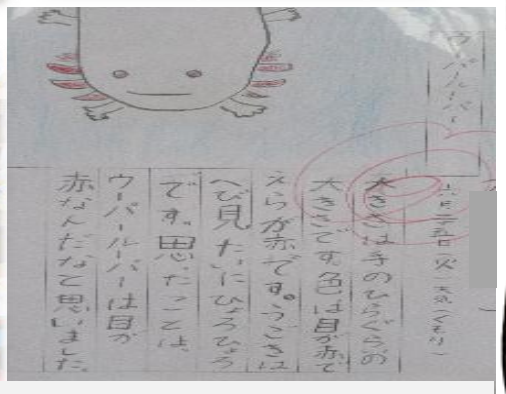 ウーパールーパー
六月二十五日(火)天気(くもり)
大きさは手のひらぐらの
大きさです。色は目が赤で
えらが赤です。うごきは
へび見たいにひょろひょろ
です。思ったことは、
ウーパールーパーは目が
赤なんだなと思いました。